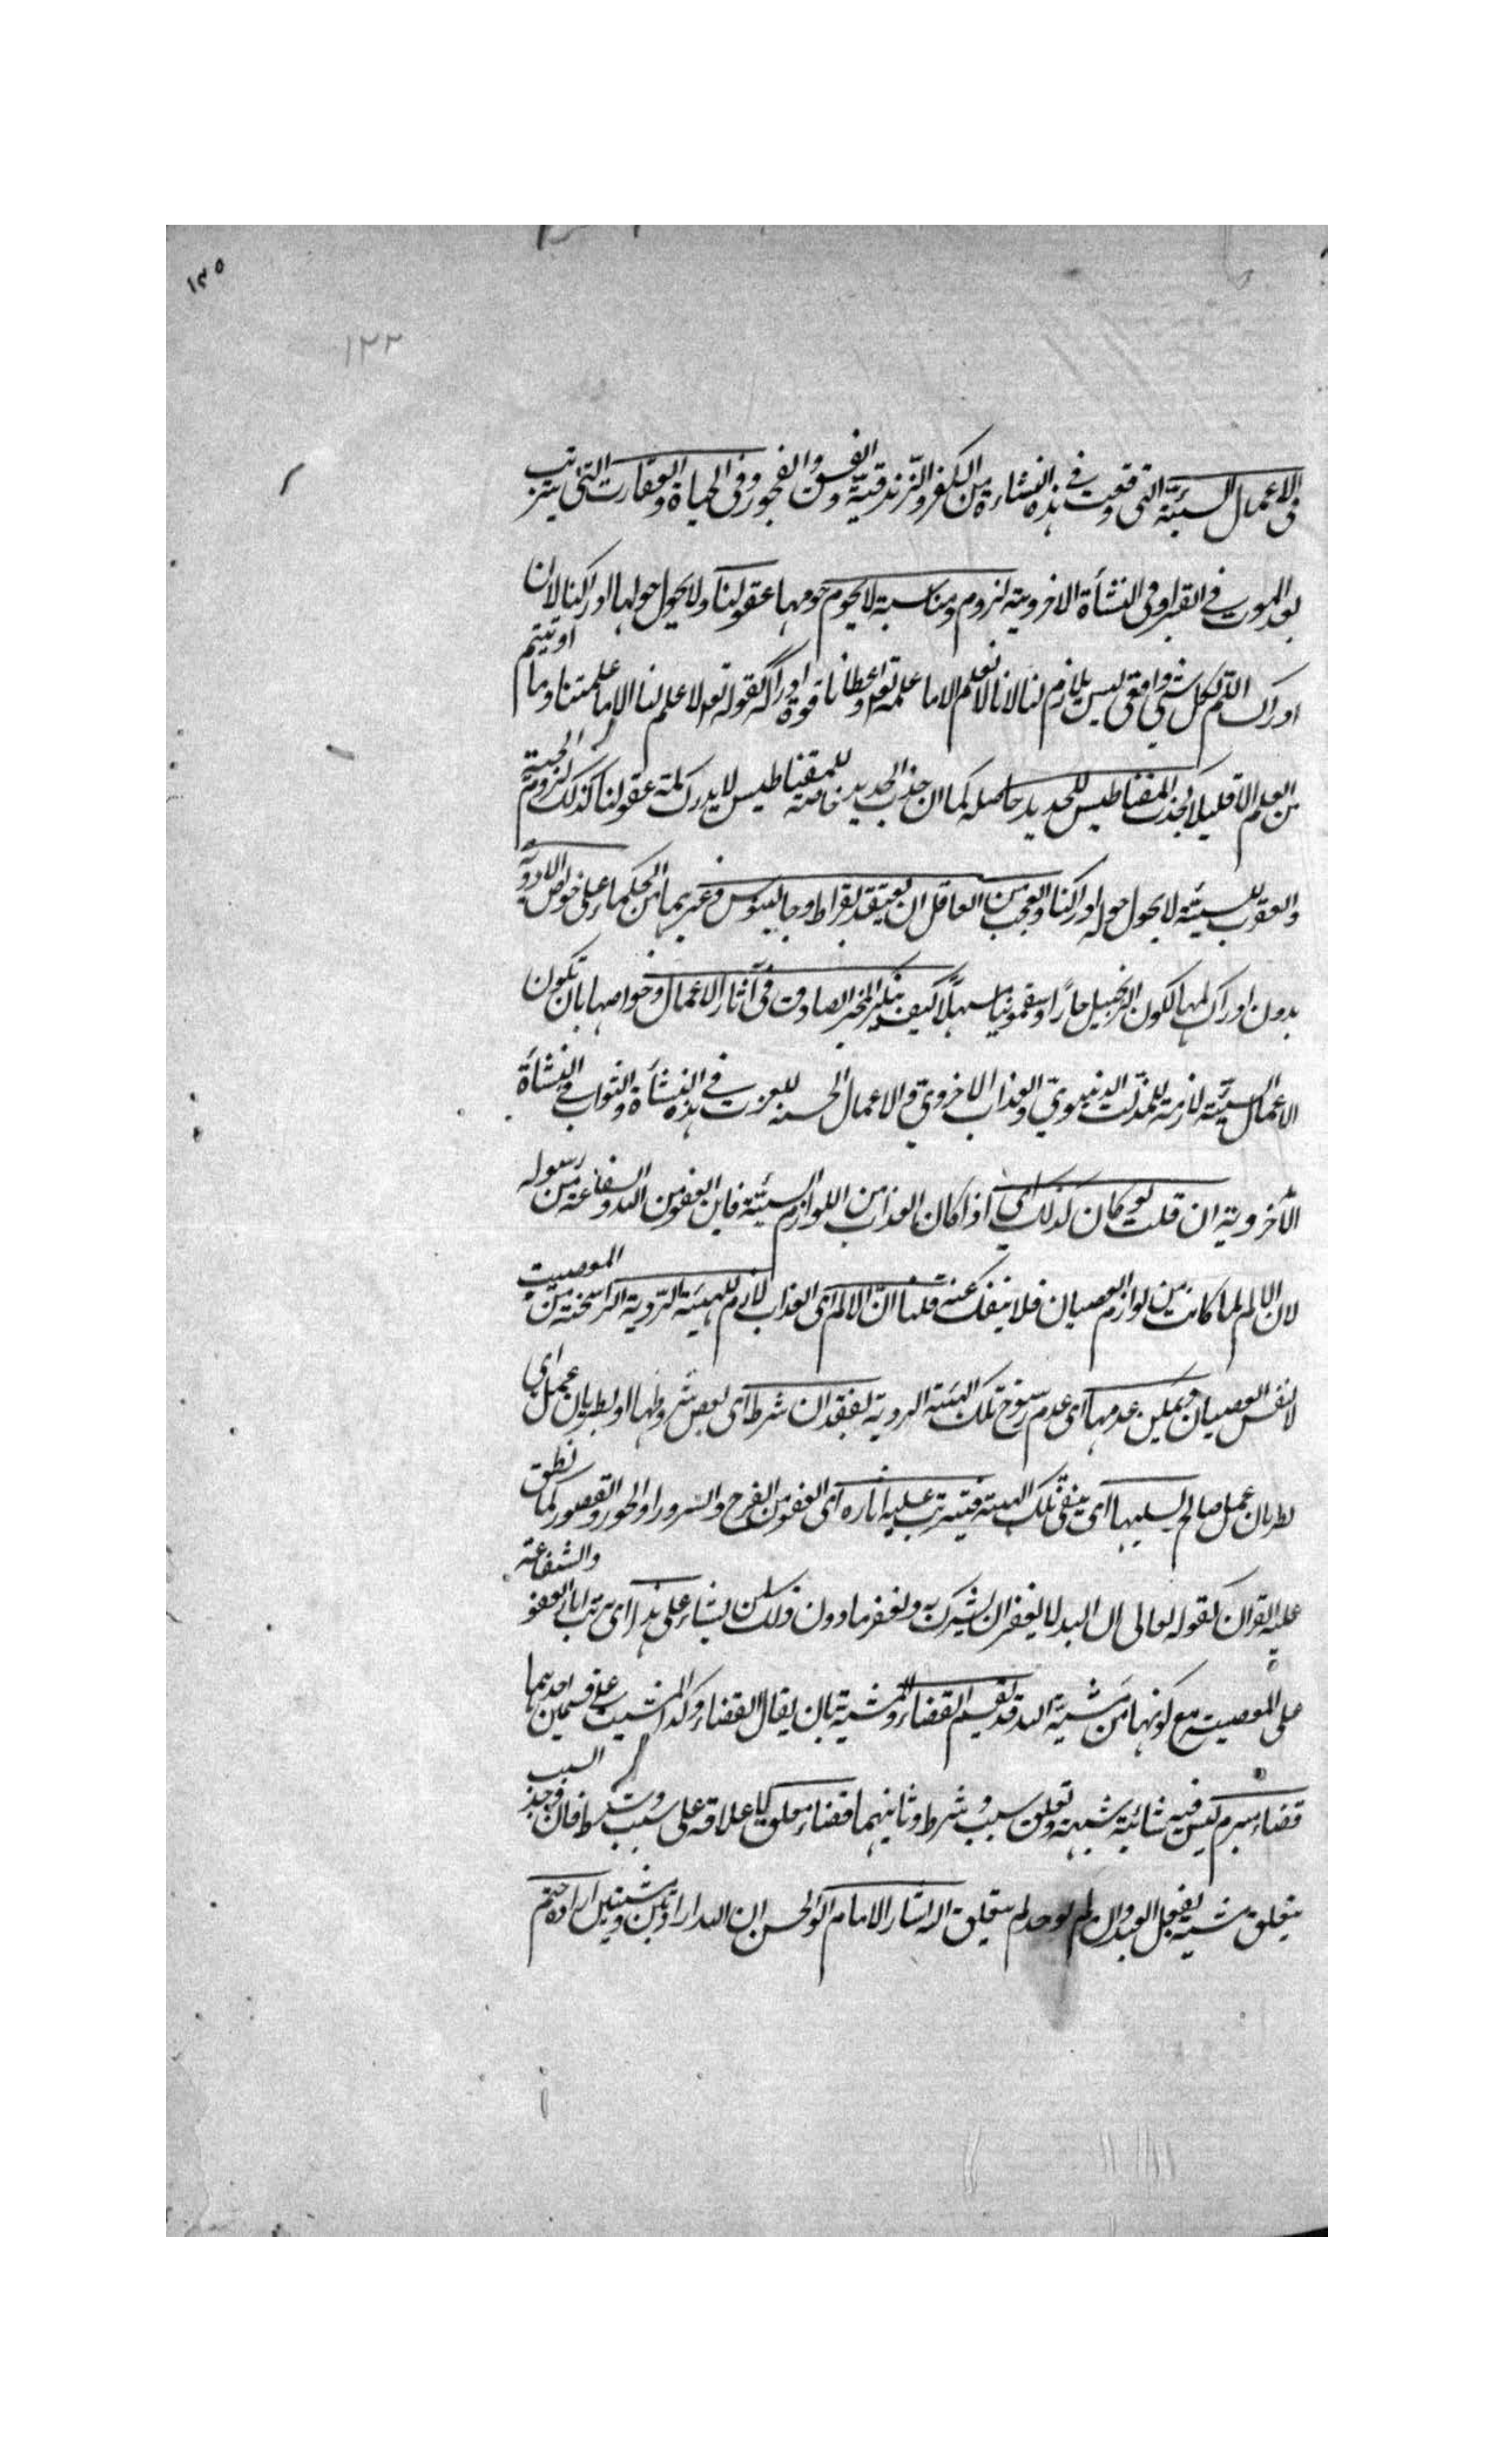 ١٣٥
١٢٢
فى الاعمال السيئة التى وقعت فى هذه النشاءة من الكفر والزندقية والفسق والفجور وفى الحياة والعقارت التى يترتب
بعد الموت فى القبر او فى النشأة الاخروية لزوم ومناسبة لا يحوم حومها عقولنا ولا يحول حولها ادراكنا لان
ادراك اللم لكل شي واقعى ليس بلازم لنا لانا لا نعلم الا ما علمه تعه واعطانا قوة ادراكه كقوله تعه لا علم لنا الا ما علمتنا وما اوتيتم
من العلم الا قليلا كجذب المقناطيس للحديد حاصله كما ان جذب الحديد خاصة للمقناطيس لا يدرك لمته عقولنا كذلك لزوم الحية
والعقرب للسيئة لا يحول حوله ادراكنا والعجب من العاقل ان يعتقد بقراط وجالينوس وغيرهما من الحكماء على خواص الادوية
بدون ادراك لمها ككون الزنجبيل حارًا وسقمونيا مسهلاً كيف ينكر المخبر الصادق فى آثار الاعمال وخواصها بان تكون
الاعمال السيئة لازمة للمذلت الدنيوي والعذاب الاخروي والاعمال الحسنه للعزت فى هذه النشأة والثواب في النشأة
الأخروية ان قلت لو كان كذلك اي اذا كان العذاب من اللوازم السيئة فاين العفو من الله والشفاعة من رسوله
لان الالم لما كانت من لوازم العصيان فلا ينفك عنه قلنا انّ الالم اى العذاب لازم للهيئة الرّدية الراسخة من المعصيت
لا نفس العصيان ويمكن عدمها اى عدم رسوخ تلك الهيئة الردية لفقدان شرط اى بعض شروطها او لطريان عمل اي
لطريان عمل صالح يسلبها اى ينفى تلك الهيئة فيترتب عليه اثاره اى العفو من الفرح والسرور او الحور والقصور كما نطق
عليه القران كقوله تعالى ان الله لا يغفر ان يشرك به ويغفر ما دون ذلك لمن يشاء على هذا اى ترتب اثار العفو والشفاعة
على المعصيت مع كونها من مشية الله قد يقسم القضاء والمشية بان يقال القضاء وكذا المشيت على قسمين احدهما
قضاء مبرم ليس فيه شائبة شبهة وتعلق سبب وشرط وثانيهما قضاء معلق كاعلاقه على سبب وشرط فان وجد السبب
يتعلق مشية بفعل العبد وان لم يوجد لم يتعلق اليه اشار الامام ابو الحسن ان الله ارادتين ومشيتين ارادة حتم